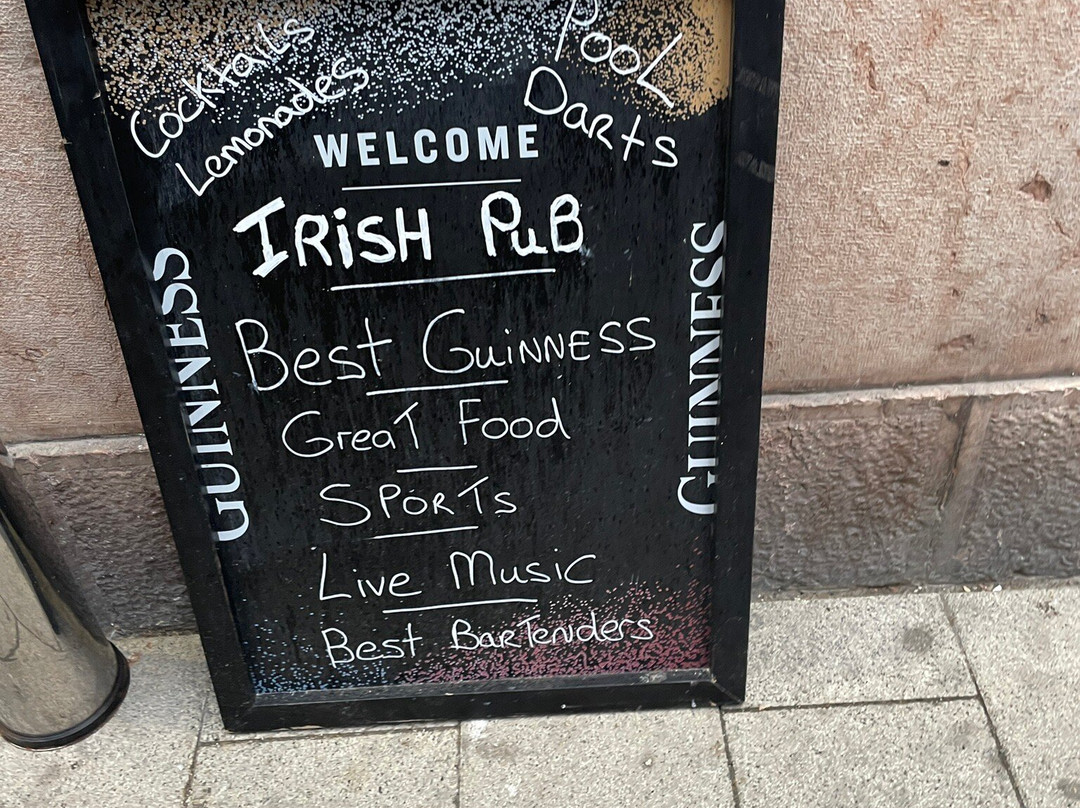 Cocktails
Lemonades
Pool
Darts
WELCOME
IRiSH PuB
Best GuiNNESS
GreaT Food
SPORTs
Live Music
Best BarTenders
GUINNESS
GUINNESS